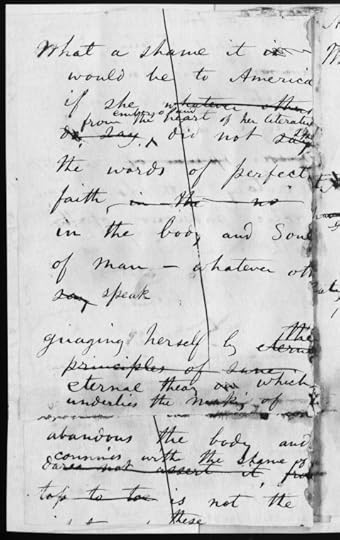 What a shame it is
would be to America
if she whatever others
from the heart of her literature
do, say, did not say
the words of perfect
faith, in the no
in the body and Soul
of man – whatever oth
say speak
guaging herself by the
eternal
principles of
eternal which
underlies the making of
abandons the body and
connives with the shame of
dares not assert it, from
top to toe is not the
these